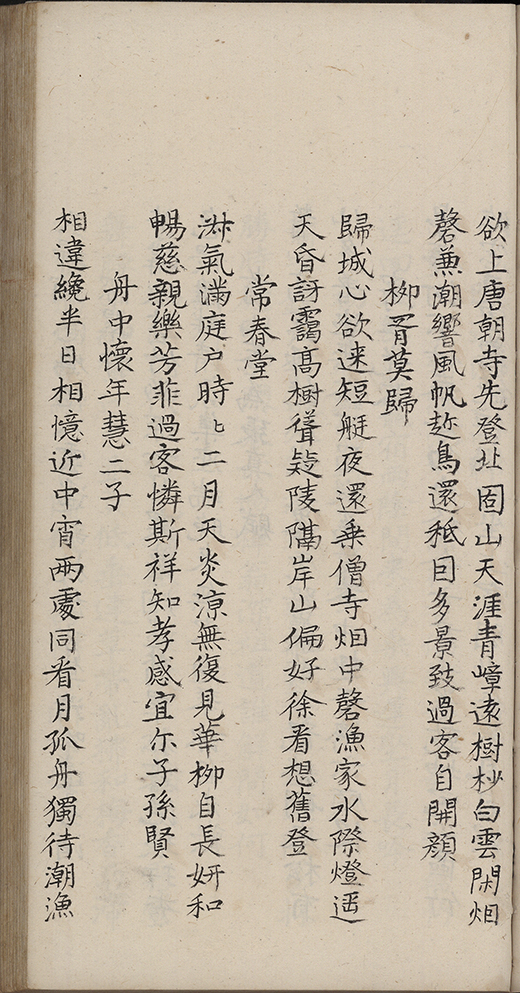 欲上唐朝寺先登北固山天涯青嶂遠樹杪白雲閑烟
磬兼潮響風帆趂鳥還秪曰多景致過客自開顔
柳胥莫歸
歸城心欲速短艇夜還乗僧寺烟中磬漁家水際燈遥
天昏訝靄高樹聳疑陵隔岸山偏好徐看想舊登
常春堂
淋氣滿庭户時〻二月天炎涼無復見華柳自長妍和
暢慈親樂芳菲過客憐斯祥知孝感宜尔子孫賢
舟中懷年慧二子
相違纔半日相憶近中宵两處同看月孤舟獨待潮漁